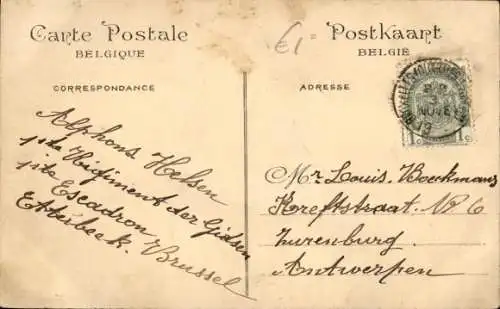 Carte Postale
BELGIQUE
CORRESPONDANCE
Alphons Helsen
1ste Regiment der Gidsen
1ste Escadron
Etterbeek. Brussel
Postkaart
BELGIË
ADRESSE
€1-
1
Mr Louis. Boekmans
Kreftstraat. No 6
Zurenburg.
Antwerpen